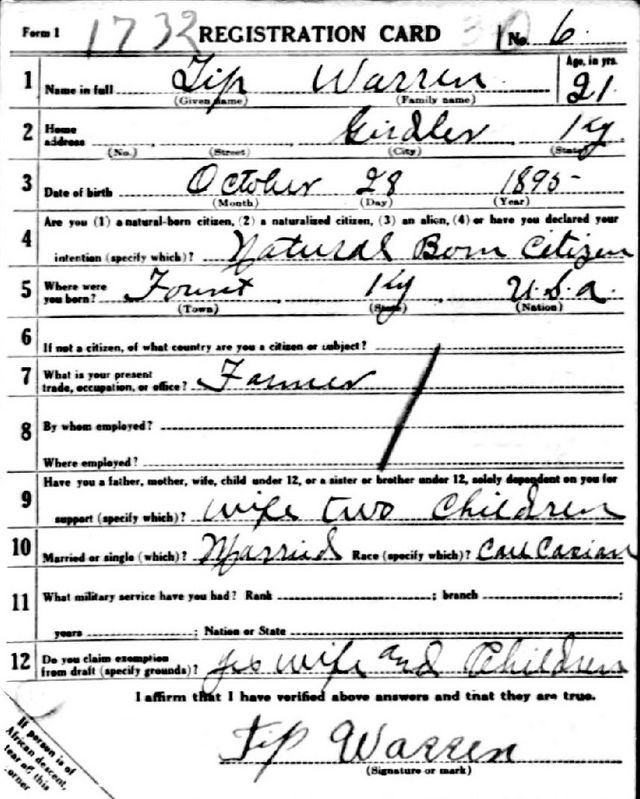 Form 1 1732 REGISTRATION CARD No. 6
1 Name in full Tip Warren Age, in yrs. 21
(Given name) (Family name)
2 Home address Girdler Ky
(No.) (Street) (City) (State)
3 Date of birth October 28 1895-
(Month) (Day) (Year)
4 Are you (1) a natural-born citizen, (2) a naturalized citizen, (3) an alien, (4) or have you declared your
intention (specify which)? Natural Born Citizen
5 Where were you born? Fount Ky U.S.A.
(Town) (State) (Nation)
6 If not a citizen, of what country are you a citizen or subject?
7 What is your present trade, occupation, or office? Farmer
8 By whom employed?
Where employed?
9 Have you a father, mother, wife, child under 12, or a sister or brother under 12, solely dependent on you for
support (specify which)? Wife two Children
10 Married or single (which)? Married Race (specify which)? Cau Casian
11 What military service have you had? Rank ; branch ;
years ; Nation or State
12 Do you claim exemption from draft (specify grounds)? yes wife and Children
I affirm that I have verified above answers and that they are true.
Tip Warren
(Signature or mark)
If person is of
African descent,
tear off this
corner